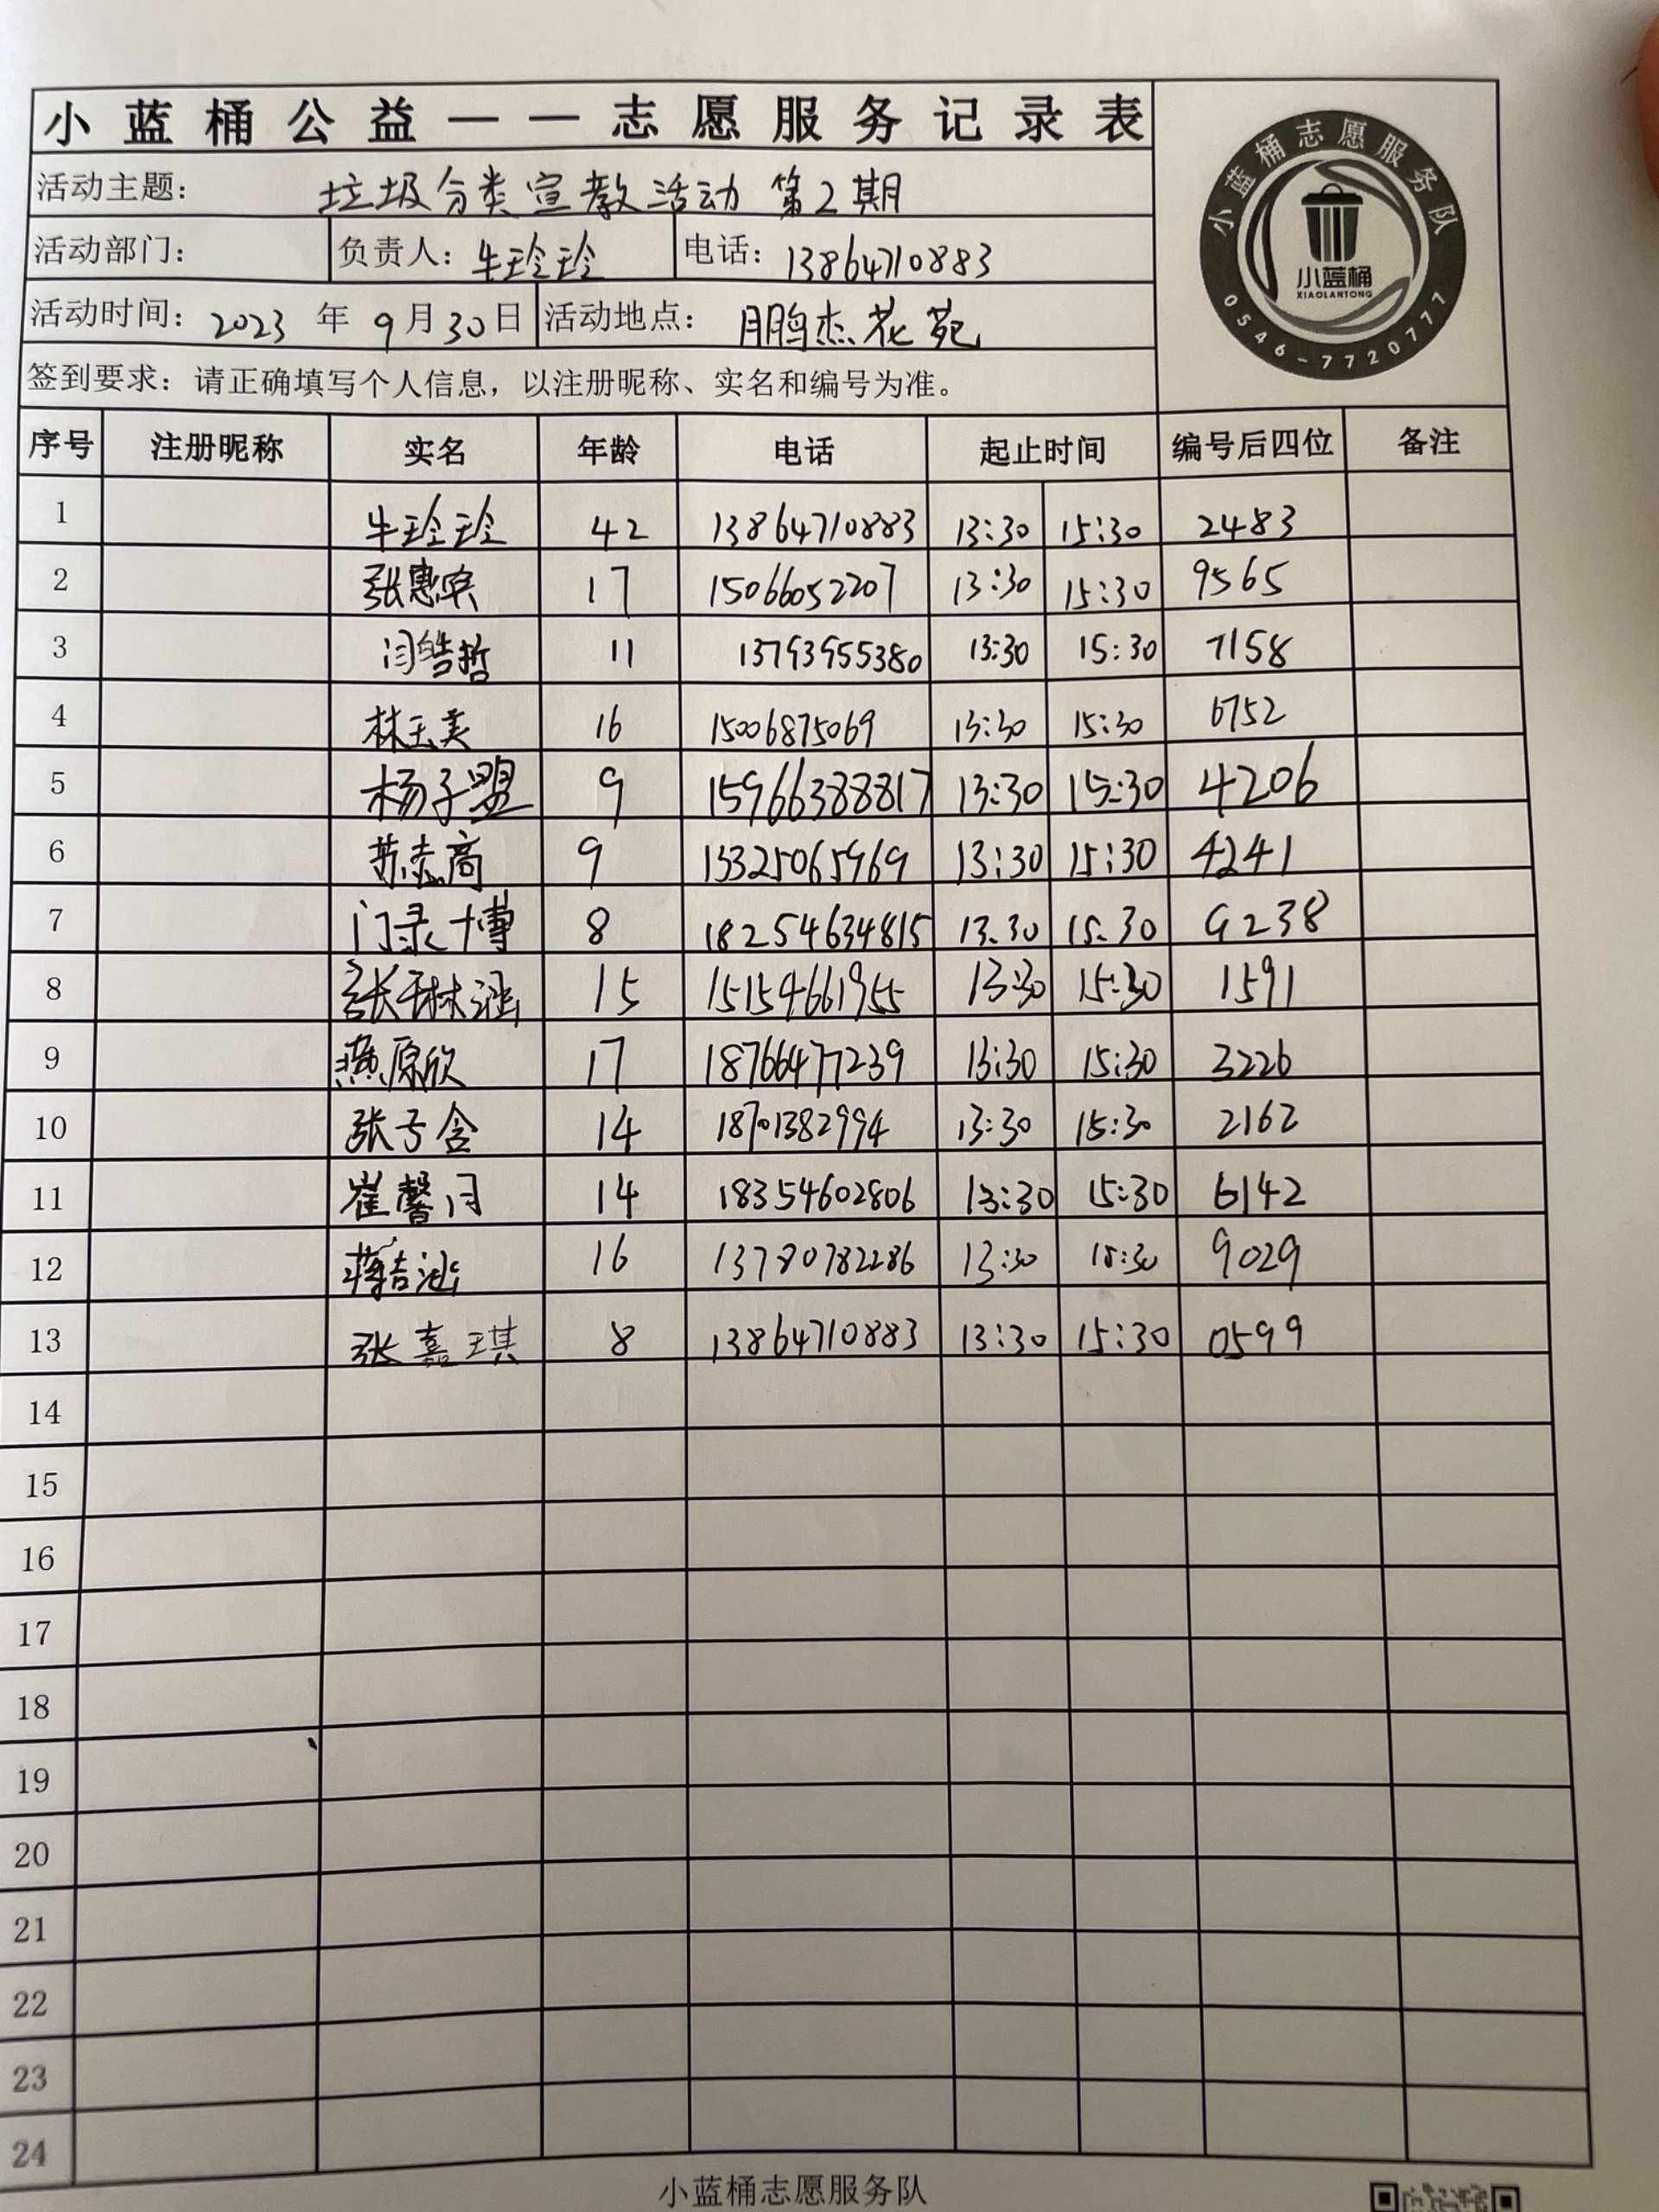 小蓝桶公益——志愿服务记录表
小蓝桶志愿服务队
小蓝桶
XIAOLANTONG
0546-7720777
活动主题： 垃圾分类宣教活动 第2期
活动部门： 负责人：牛玲玲 电话：13864710883
活动时间：2023 年 9月30日 活动地点：鹏杰花苑
签到要求：请正确填写个人信息，以注册昵称、实名和编号为准。
序号 注册昵称 实名 年龄 电话 起止时间 编号后四位 备注
1 牛玲玲 42 13864710883 13:30 15:30 2483
2 张惠 17 15066052207 13:30 15:30 9565
3 闫皓哲 11 13793955380 13:30 15:30 7158
4 林玉美 16 15006875069 13:30 15:30 6752
5 杨子盟 9 15966388817 13:30 15:30 4206
6 苏志高 9 13325065969 13:30 15:30 4241
7 门录博 8 18254634815 13.30 15.30 9238
8 张琳涵 15 15154661955 13:30 15:30 1591
9 燕原欣 17 18766477239 13:30 15:30 3226
10 张子含 14 18701382994 13:30 15:30 2162
11 崔馨月 14 18354602806 13:30 15:30 6142
12 蒋吉涵 16 13780782286 13:30 15:30 9029
13 张嘉琪 8 13864710883 13:30 15:30 0599
14
15
16
17
18
19
20
21
22
23
24
小蓝桶志愿服务队